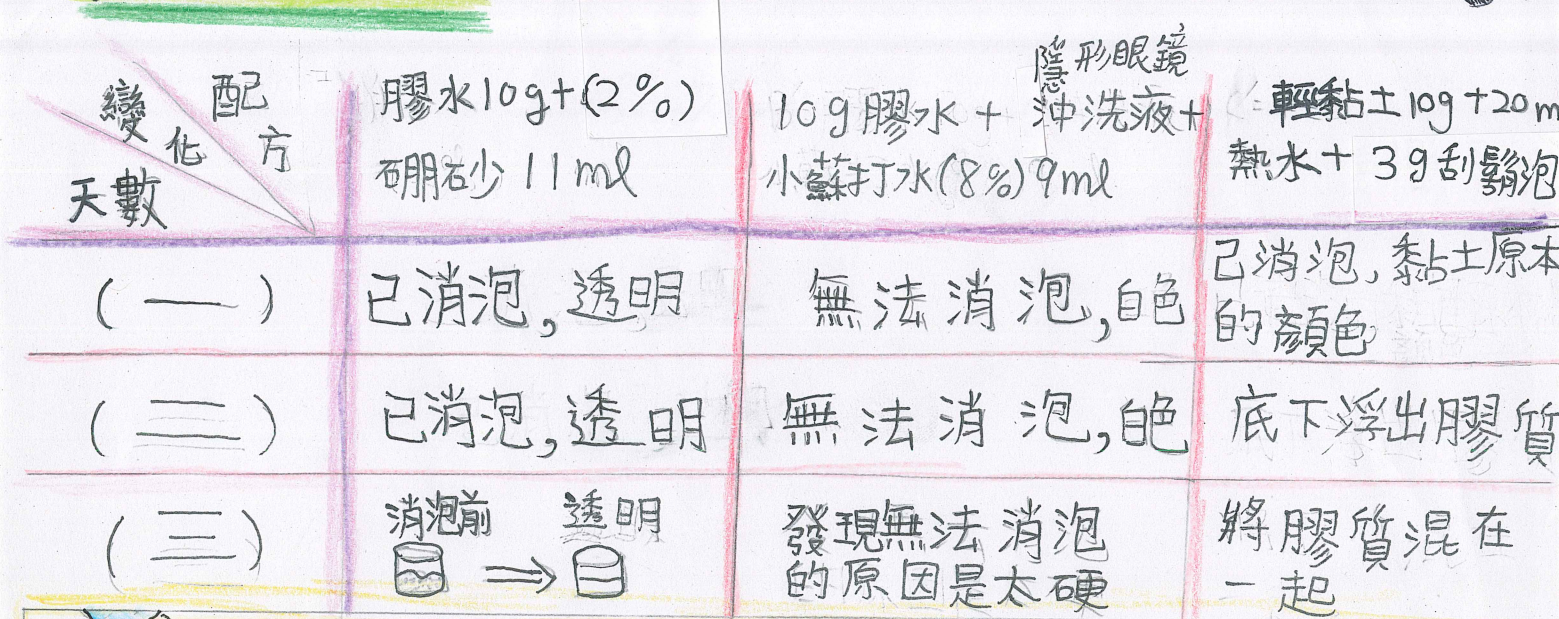 變化 配方
天數
膠水10g+(2%)
硼砂11ml
10g膠水+隱形眼鏡沖洗液+
小蘇打水(8%)9ml
輕黏土10g+20m
熱水+3g刮鬍泡
(一)
已消泡,透明
無法消泡,白色
己消泡,黏土原本
的顏色
(二)
已消泡,透明
無法消泡,白色
底下浮出膠質
(三)
消泡前
透明
發現無法消泡
的原因是太硬
將膠質混在
一起